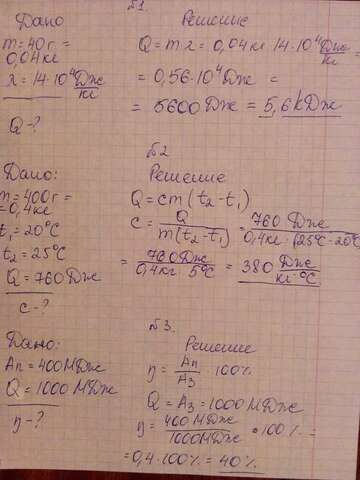 №1
Дано
m=40г=
0,04кг
λ=14·10⁴ Дж/кг
Q-?
Решение
Q=mλ=0,04кг·14·10⁴ Дж/кг=
=0,56·10⁴Дж=
=5600Дж=5,6кДж
№2
Дано:
m=400г=
=0,4кг
t₁=20°C
t₂=25°C
Q=760Дж
c-?
Решение
Q=cm(t₂-t₁)
c=Q/m(t₂-t₁)=760 Дж/0,4кг·(25°C-20°C)
=760Дж/0,4кг·5°C=380 Дж/кг·°C
№3.
Дано:
Aп=400МДж
Q=1000МДж
η-?
Решение
η=Aп/Aз·100%
Q=Aз=1000МДж
η=400МДж/1000МДж·100%=
=0,4·100%=40%